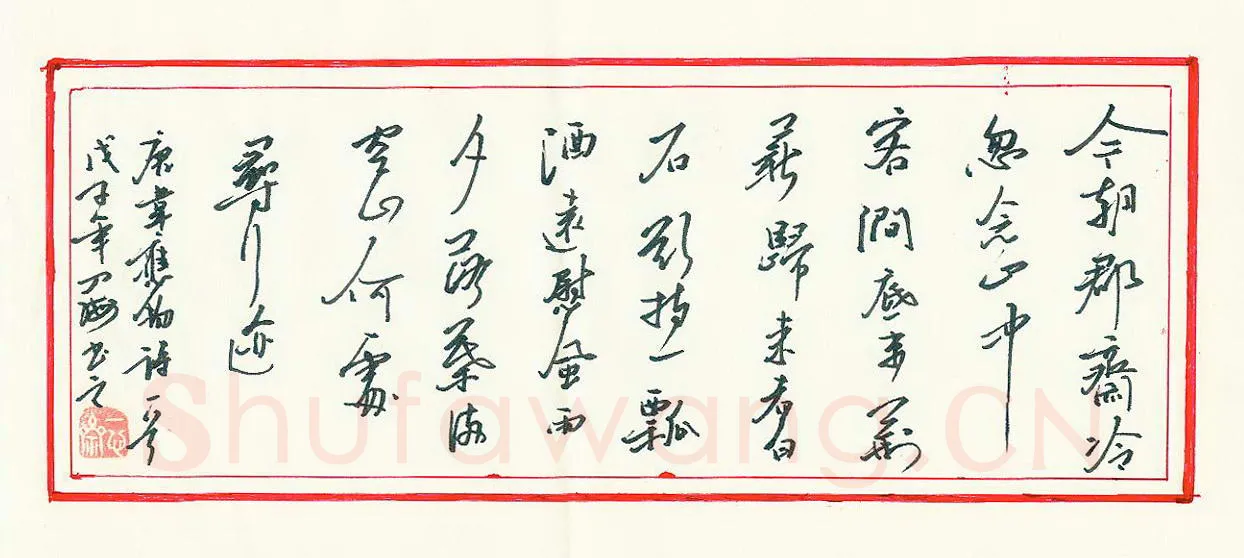 今朝郡齋冷
忽念山中
客澗底束荆
薪歸来煮白
石欲持一瓢
酒遠慰風雨
夕落葉滿
空山何處
尋行迹
唐韋應物詩一首
戊子年海書之
Shufawang.CN